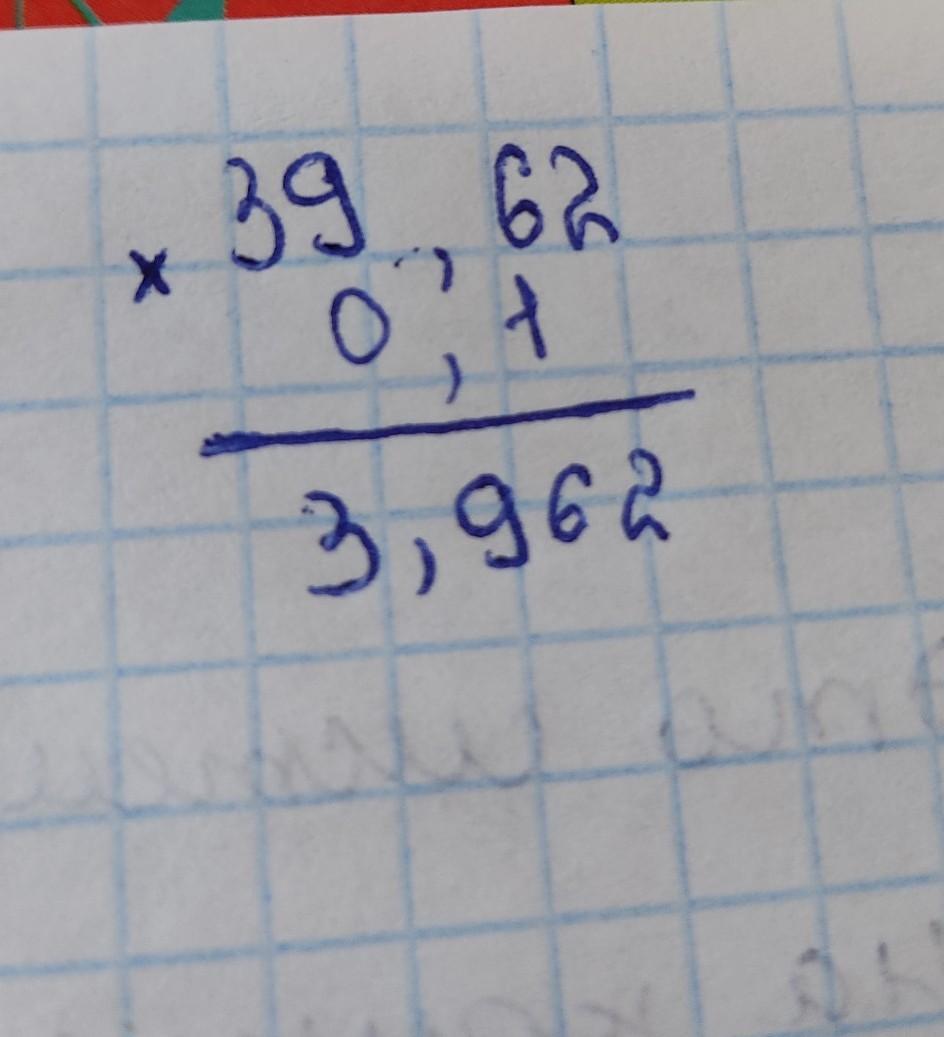 39,62
×
0,1
3,962